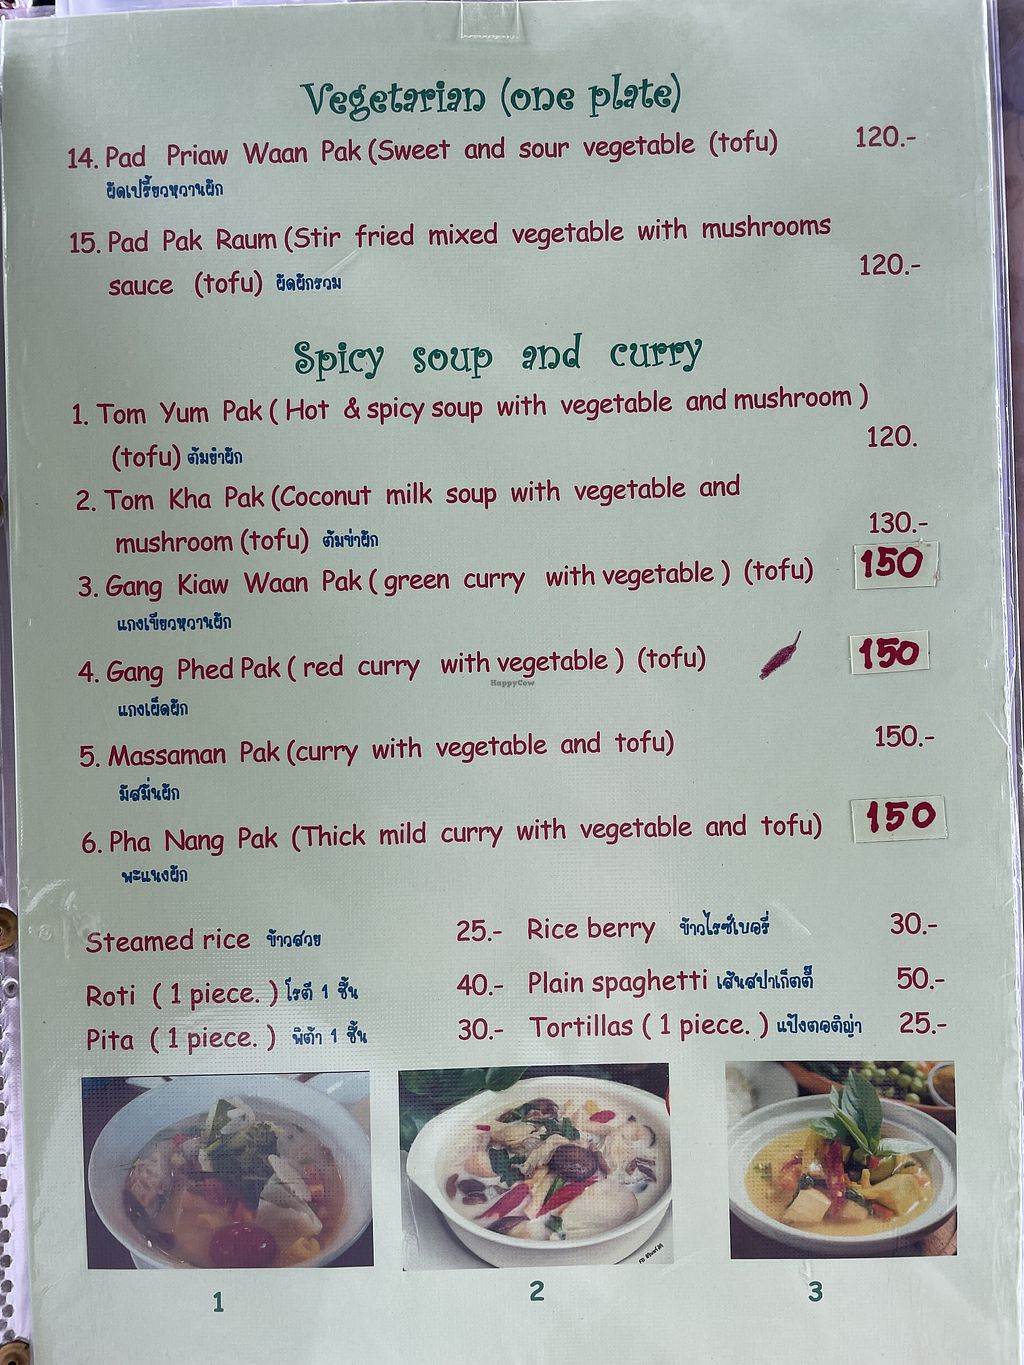 Vegetarian (one plate)
14. Pad Priaw Waan Pak (Sweet and sour vegetable (tofu) 120.-
ผัดเปรี้ยวหวานผัก
15. Pad Pak Raum (Stir fried mixed vegetable with mushrooms
sauce (tofu) ผัดผักรวม 120.-
Spicy soup and curry
1. Tom Yum Pak ( Hot & spicy soup with vegetable and mushroom )
(tofu) ต้มยำผัก 120.
2. Tom Kha Pak (Coconut milk soup with vegetable and
mushroom (tofu) ต้มข่าผัก 130.-
3. Gang Kiaw Waan Pak ( green curry with vegetable ) (tofu) 150
แกงเขียวหวานผัก
4. Gang Phed Pak ( red curry with vegetable ) (tofu) 150
HappyCow
แกงเผ็ดผัก
5. Massaman Pak (curry with vegetable and tofu) 150.-
มัสมั่นผัก
6. Pha Nang Pak (Thick mild curry with vegetable and tofu) 150
พะแนงผัก
Steamed rice ข้าวสวย 25.- Rice berry ข้าวไรซ์เบอรี่ 30.-
Roti ( 1 piece. ) โรตี 1 ชิ้น 40.- Plain spaghetti เส้นสปาเก็ตตี๊ 50.-
Pita ( 1 piece. ) พิต้า 1 ชิ้น 30.- Tortillas ( 1 piece. ) แป้งตอติญ่า 25.-
1 2 3